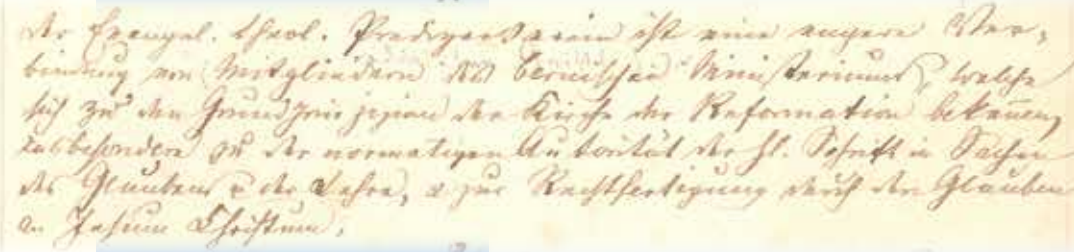 Der Evangel. theol. Predigerverein ist eine engere Ver-
bindung von Mitgliedern des bernischen Ministeriums, welche
sich zu den Grundprinzipien der Kirche der Reformation bekennen,
insbesondere zu der normativen Autorität der hl. Schrift in Sachen
des Glaubens u. der Lehre, u. zur Rechtfertigung durch den Glauben
an Jesum Christum.